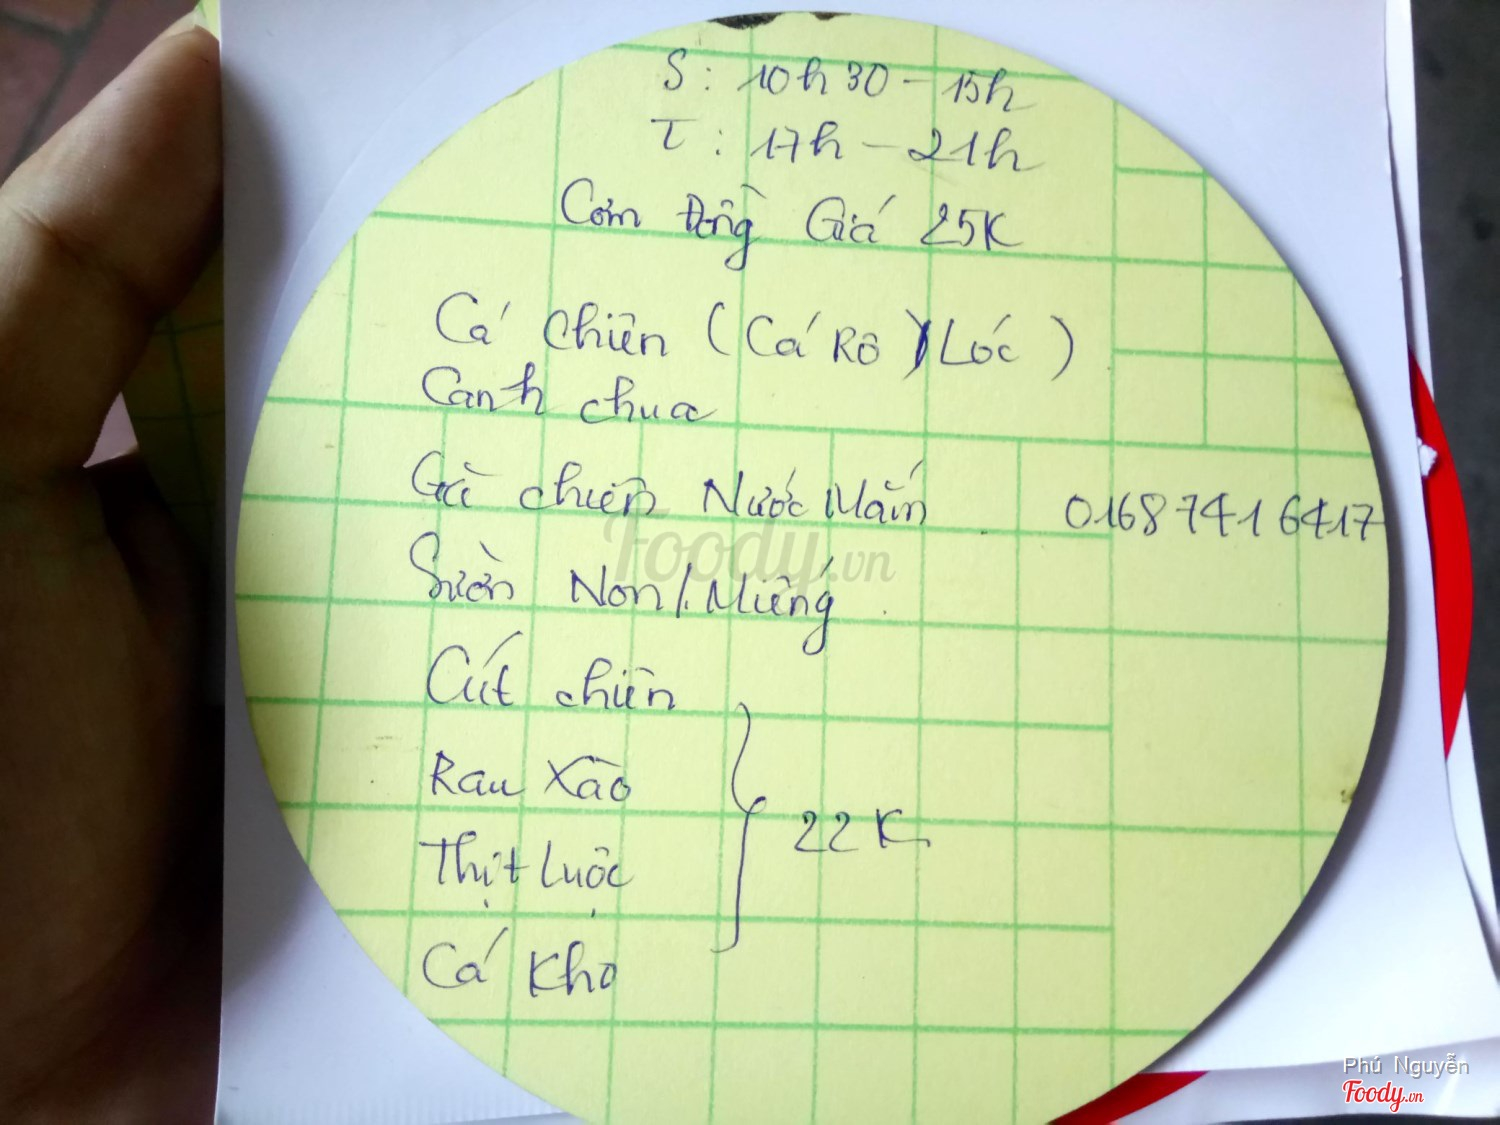 S: 10h30 - 15h
T: 17h - 21h
Cơm Đồng Giá 25K
Cá chiên (Cá Rô)(Lóc)
Canh chua
Gà chiên Nước Mắm
01687416417
Sườn Non/. Miếng
Cút chiên
Rau Xào
22K
Thịt Luộc
Cá Kho
Foody.vn
Phú Nguyễn
Foody.vn